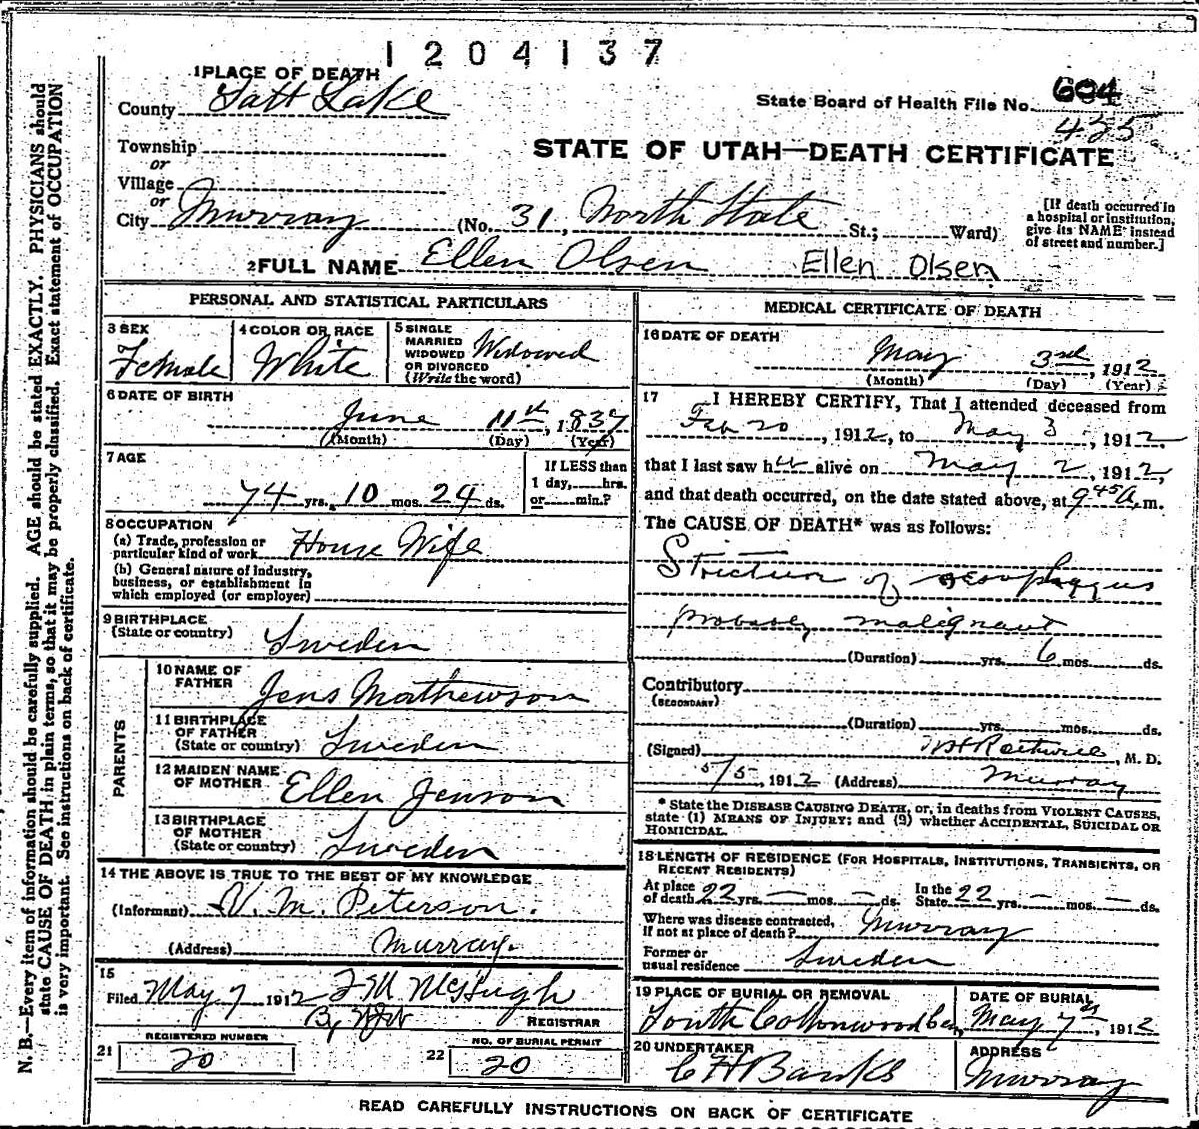 1204137
1 PLACE OF DEATH
County Salt Lake
State Board of Health File No. 604
435
Township
or
Village
or
STATE OF UTAH—DEATH CERTIFICATE
City Murray (No. 31, North State St.; Ward)
[If death occurred in a hospital or institution, give its NAME instead of street and number.]
2 FULL NAME Ellen Olsen Ellen Olsen
PERSONAL AND STATISTICAL PARTICULARS
3 SEX
Female
4 COLOR OR RACE
White
5 SINGLE
MARRIED
WIDOWED
OR DIVORCED
(Write the word)
Widowed
6 DATE OF BIRTH
June 11th, 1837
(Month) (Day) (Year)
7 AGE
74 yrs. 10 mos. 24 ds.
If LESS than
1 day, hrs.
or min.?
8 OCCUPATION
(a) Trade, profession or
particular kind of work House Wife
(b) General nature of industry,
business, or establishment in
which employed (or employer)
9 BIRTHPLACE
(State or country) Sweden
PARENTS
10 NAME OF
FATHER Jens Mathewson
11 BIRTHPLACE
OF FATHER
(State or country) Sweden
12 MAIDEN NAME
OF MOTHER Ellen Jenson
13 BIRTHPLACE
OF MOTHER
(State or country) Sweden
14 THE ABOVE IS TRUE TO THE BEST OF MY KNOWLEDGE
(Informant) N. M. Peterson.
(Address) Murray.
15
Filed May 7 1912 McHugh
By
REGISTRAR
21 REGISTERED NUMBER
20
22 NO. OF BURIAL PERMIT
20
MEDICAL CERTIFICATE OF DEATH
16 DATE OF DEATH
May 3rd, 1912
(Month) (Day) (Year)
17 I HEREBY CERTIFY, That I attended deceased from
Feb 20, 1912, to May 3, 1912,
that I last saw her alive on May 2, 1912,
and that death occurred, on the date stated above, at 9 45 A. m.
The CAUSE OF DEATH* was as follows:
Stricture of oesophagus
probably malignant
(Duration) yrs. 6 mos. ds.
Contributory
(SECONDARY)
(Duration) yrs. mos. ds.
(Signed) , M. D.
5/5, 1912 (Address) Murray
* State the DISEASE CAUSING DEATH, or, in deaths from VIOLENT CAUSES,
state (1) MEANS OF INJURY; and (2) whether ACCIDENTAL, SUICIDAL OR
HOMICIDAL.
18 LENGTH OF RESIDENCE (FOR HOSPITALS, INSTITUTIONS, TRANSIENTS, OR
RECENT RESIDENTS)
At place
of death 22 yrs. — mos. — ds. In the
State 22 yrs. — mos. — ds.
Where was disease contracted,
if not at place of death? Murray
Former or
usual residence Sweden
19 PLACE OF BURIAL OR REMOVAL
South Cottonwood Cem,
DATE OF BURIAL
May 7th, 1912
20 UNDERTAKER
C H Banks
ADDRESS
Murray
READ CAREFULLY INSTRUCTIONS ON BACK OF CERTIFICATE
N. B.—Every item of information should be carefully supplied. AGE should be stated EXACTLY. PHYSICIANS should
state CAUSE OF DEATH in plain terms, so that it may be properly classified. Exact statement of OCCUPATION
is very important. See instructions on back of certificate.